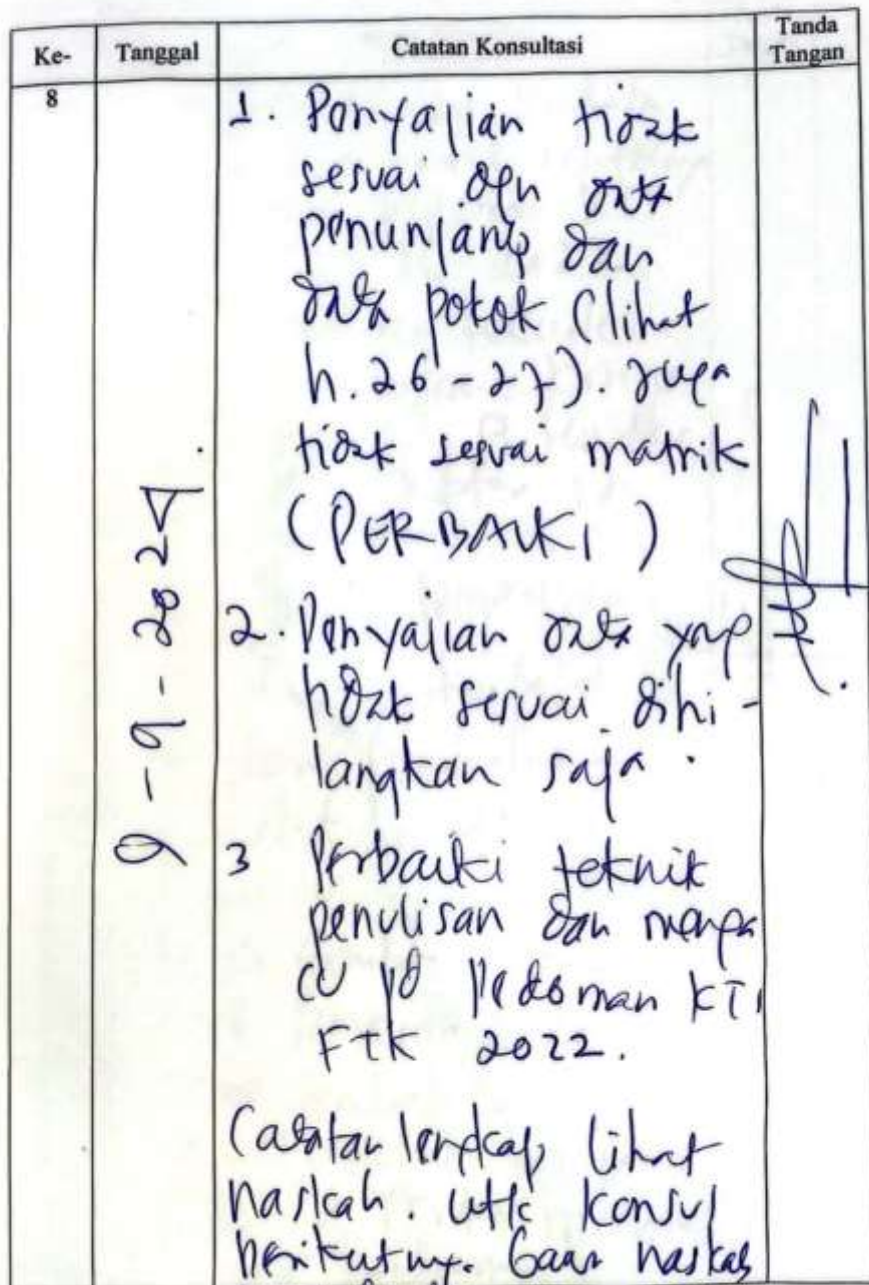 Ke-
Tanggal
Catatan Konsultasi
Tanda
Tangan
8
9-9-2024.
1. Penyajian tidak
sesuai dgn data
penunjang dan
data pokok (lihat
h. 26-27). Juga
tidak sesuai matrik
(PERBAIKI)
2. Penyajian data yang
tidak sesuai dihi-
langkan saja.
3 Perbaiki teknik
penulisan dan menga
cu pd Pedoman KTI
FTK 2022.
Catatan lengkap lihat
naskah. utk konsul
berikutnya. Bawa naskah